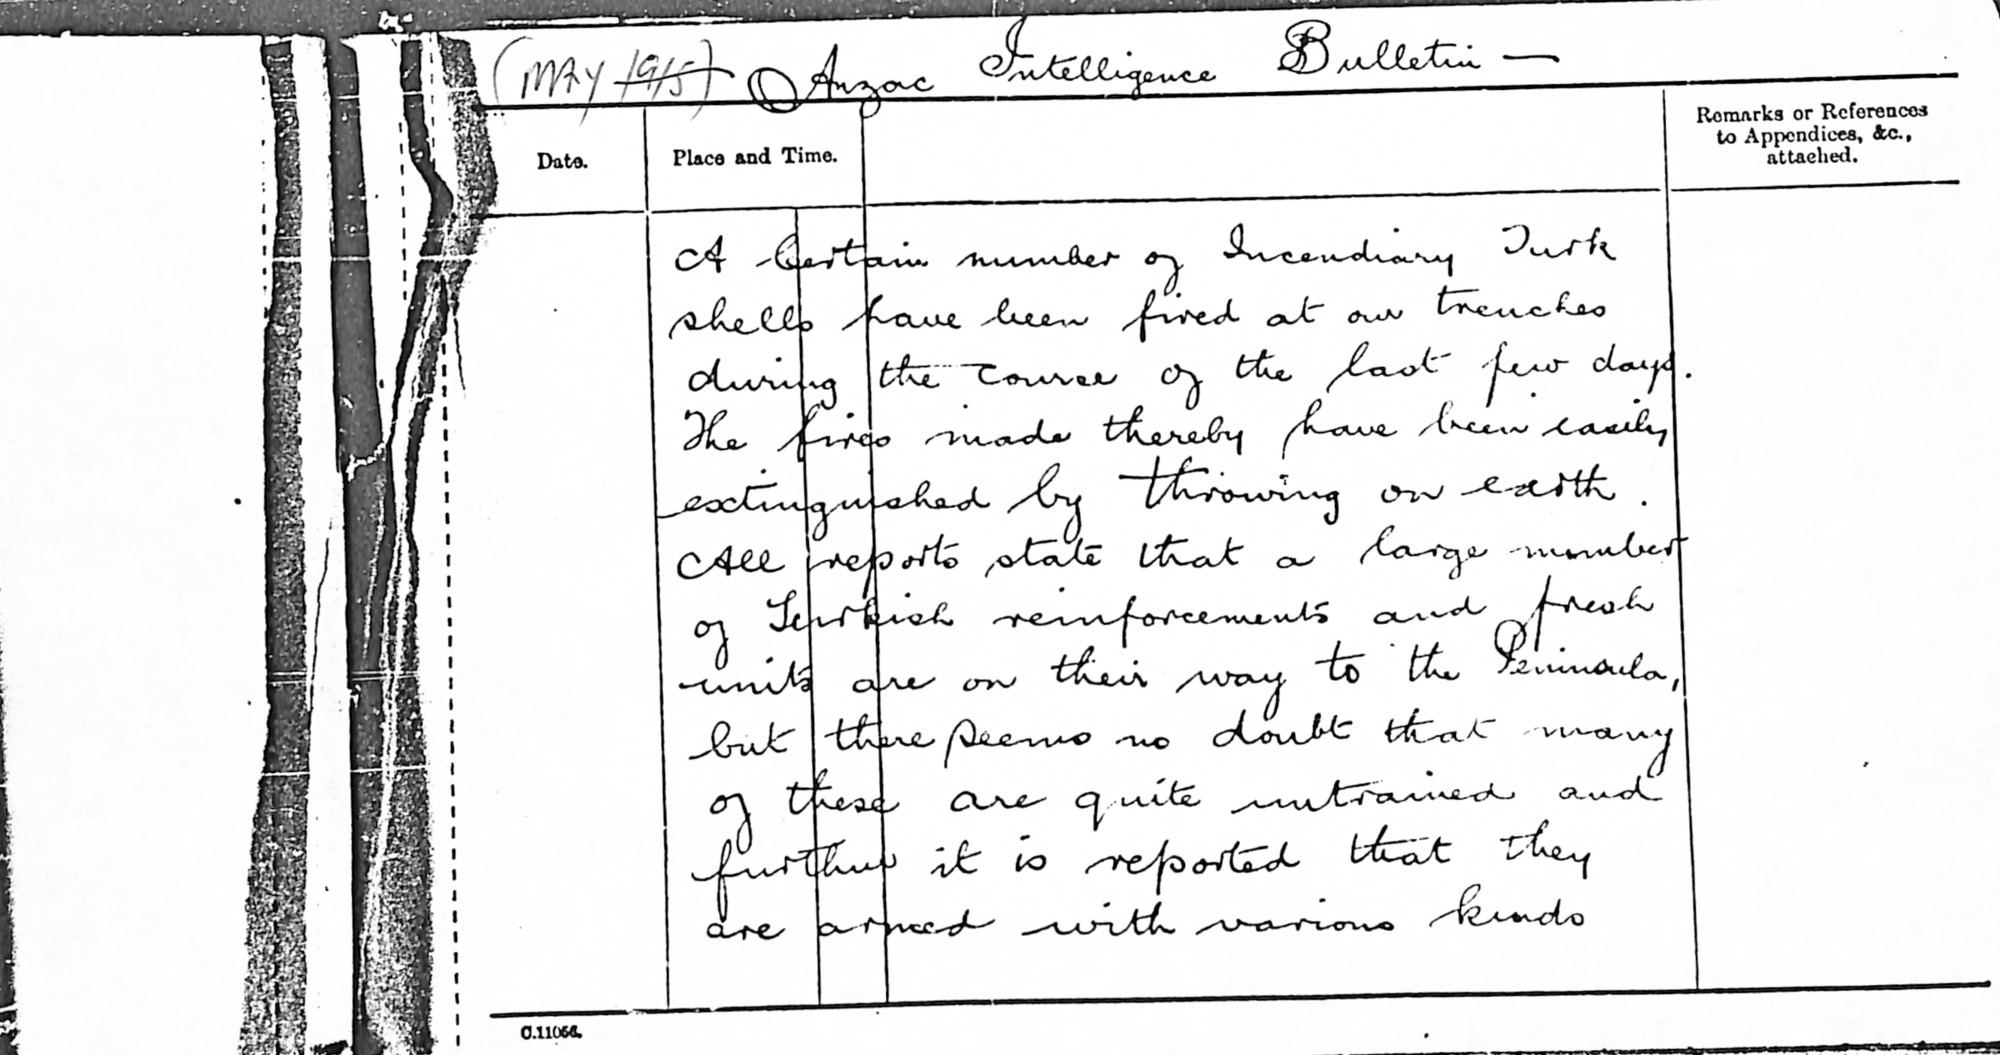 (MAY 1915) Anzac Intelligence Bulletin —
Date.
Place and Time.
Remarks or References
to Appendices, &c.,
attached.
A Certain number of Incendiary Turk
shells have been fired at our trenches
during the course of the last few days.
The fires made thereby have been easily
extinguished by throwing on earth.
All reports state that a large number
of Turkish reinforcements and fresh
units are on their way to the Peninsula,
but there seems no doubt that many
of these are quite untrained and
further it is reported that they
are armed with various kinds
C.11056.